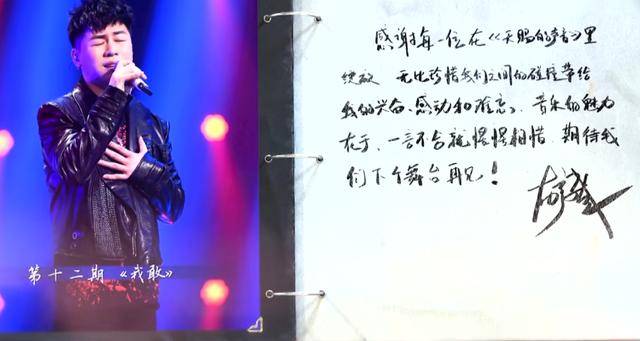 第十二期 《我敢》
感谢每一位在《天赐的声音》里
绽放 无比珍惜我们之间的碰撞带给
我的兴奋、感动和难忘。音乐的魅力
在于，一言不合就惺惺相惜，期待我
们下个舞台再见！